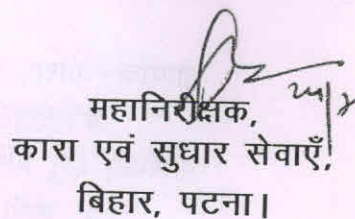 महानिरीक्षक,
कारा एवं सुधार सेवाएँ,
बिहार, पटना।